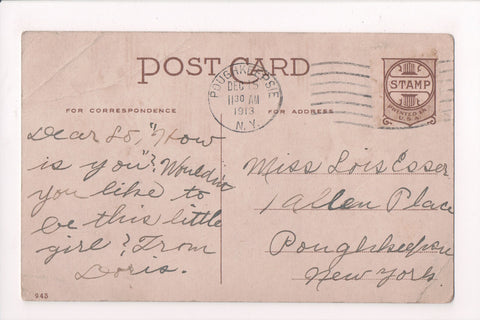 POST CARD
POUGHKEEPSIE
DEC 15
1130 AM
1913
N.Y.
STAMP
PRINTED IN
U.S.A.
FOR CORRESPONDENCE
FOR ADDRESS
Dear Lo, "How
is you"? Wouldn't
you like to
be this little
girl? From
Doris.
Miss Lois Esser
1 Allen Place
Poughkeepsie
New York.
943